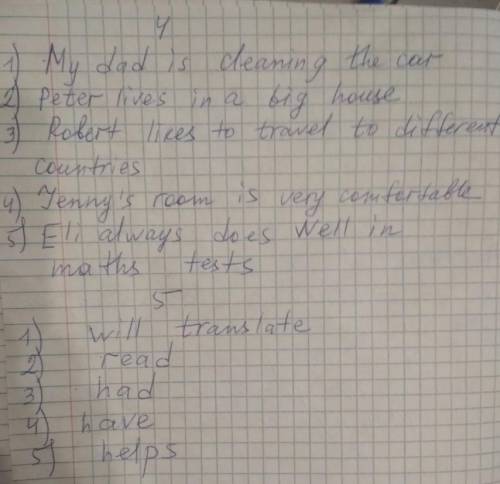 4
1) My dad is cleaning the car
2) Peter lives in a big house
3) Robert likes to travel to different
countries
4) Jenny's room is very comfortable
5) Eli always does well in
maths tests
5
1) will translate
2) read
3) had
4) have
5) helps